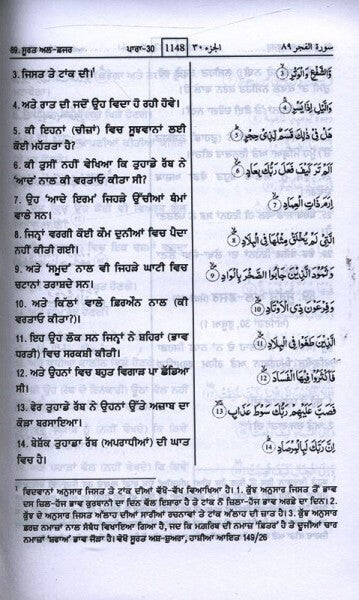 89. ਸੂਰਤ ਅਲ-ਫਜਰ ਪਾਰਾ-30 1148 الجزء ٣٠ سورة الفجر ٨٩
3. ਜਿਸਤ ਤੇ ਟਾਂਕ ਦੀ।¹
وَالشَّفْعِ وَالْوَتْرِ 3
4. ਅਤੇ ਰਾਤ ਦੀ ਜਦੋਂ ਉਹ ਵਿਦਾ ਹੋ ਰਹੀ ਹੋਵੇ।
وَالَّيْلِ اِذَا يَسْرِ 4
5. ਕੀ ਇਹਨਾਂ (ਚੀਜ਼ਾਂ) ਵਿਚ ਸੂਝਵਾਨਾਂ ਲਈ
ਕੋਈ ਮਹੱਤਤਾ ਹੈ?
هَلْ فِيْ ذٰلِكَ قَسَمٌ لِّذِيْ حِجْرٍ 5
6. ਕੀ ਤੁਸੀਂ ਨਹੀਂ ਵੇਖਿਆ ਕਿ ਤੁਹਾਡੇ ਰੱਬ ਨੇ
'ਆਦ' ਨਾਲ ਕੀ ਵਰਤਾਓ ਕੀਤਾ ਸੀ?
اَلَمْ تَرَ كَيْفَ فَعَلَ رَبُّكَ بِعَادٍ 6
7. ਉਹ 'ਆਦੇ ਇਰਮ' ਜਿਹੜੇ ਉੱਚੀਆਂ ਥੰਮਾਂ
ਵਾਲੇ ਸਨ।
اِرَمَ ذَاتِ الْعِمَادِ 7
8. ਜਿਨ੍ਹਾਂ ਵਰਗੀ ਕੋਈ ਕੌਮ ਦੁਨੀਆਂ ਵਿਚ ਪੈਦਾ
ਨਹੀਂ ਕੀਤੀ ਗਈ।
الَّتِيْ لَمْ يُخْلَقْ مِثْلُهَا فِي الْبِلَادِ 8
9. ਅਤੇ 'ਸਮੂਦਾਂ' ਨਾਲ ਵੀ ਜਿਹੜੇ ਘਾਟੀ ਵਿਚ
ਚਟਾਨਾਂ ਤਰਾਸ਼ਦੇ ਸਨ।
وَثَمُوْدَ الَّذِيْنَ جَابُوا الصَّخْرَ بِالْوَادِ 9
10. ਅਤੇ ਕਿੱਲਾਂ ਵਾਲੇ ਫ਼ਿਰਔਨ ਨਾਲ (ਕੀ
ਵਰਤਾਓ ਕੀਤਾ?)।
وَفِرْعَوْنَ ذِي الْاَوْتَادِ 10
11. ਇਹ ਉਹ ਲੋਕ ਸਨ ਜਿਨ੍ਹਾਂ ਨੇ ਸ਼ਹਿਰਾਂ (ਭਾਵ
ਧਰਤੀ) ਵਿਚ ਸਰਕਸ਼ੀ ਕੀਤੀ।
الَّذِيْنَ طَغَوْا فِي الْبِلَادِ 11
12. ਅਤੇ ਉਹਨਾਂ ਵਿਚ ਬਹੁਤ ਵਿਗਾੜ ਪਾ ਛੱਡਿਆ
ਸੀ।
فَاَكْثَرُوْا فِيْهَا الْفَسَادَ 12
13. ਫੇਰ ਤੁਹਾਡੇ ਰੱਬ ਨੇ ਉਹਨਾਂ ਉੱਤੇ ਅਜ਼ਾਬ ਦਾ
ਕੋੜਾ ਬਰਸਾਇਆ।
فَصَبَّ عَلَيْهِمْ رَبُّكَ سَوْطَ عَذَابٍ 13
14. ਬੇਸ਼ੱਕ ਤੁਹਾਡਾ ਰੱਬ (ਅਪਰਾਧੀਆਂ) ਦੀ ਘਾਤ
ਵਿਚ ਹੈ।
اِنَّ رَبَّكَ لَبِالْمِرْصَادِ 14
¹ ਵਿਦਵਾਨਾਂ ਅਨੁਸਾਰ ਜਿਸਤ ਤੇ ਟਾਂਕ ਦੀਆਂ ਵੱਖੋ-ਵੱਖ ਵਿਆਖਿਆ ਹੈ। 1. ਕੁੱਝ ਅਨੁਸਾਰ ਜਿਸਤ ਤੋਂ ਭਾਵ
ਦਸ ਜ਼ਿਲ-ਹੱਜ ਭਾਵ ਕੁਰਬਾਨੀ ਦਾ ਦਿਨ ਵੱਲ ਇਸ਼ਾਰਾ ਹੈ ਤੇ ਟਾਂਕ ਨੌਂ ਜ਼ਿਲਾ-ਹੱਜ ਭਾਵ ਅਰਫ਼ੇ ਦਾ ਦਿਨ। 2.
ਕੁੱਝ ਦੇ ਅਨੁਸਾਰ ਜਿਸਤ ਅੱਲਾਹ ਦੀਆਂ ਸਾਰੀਆਂ ਰਚਨਾਵਾਂ ਤੇ ਟਾਂਕ ਅੱਲਾਹ ਦੀ ਜ਼ਾਤ ਹੈ। 3. ਕੁੱਝ ਅਨੁਸਾਰ
ਫ਼ਰਜ਼ ਨਮਾਜ਼ਾਂ ਨਾਲ ਸੰਬੰਧ ਵਿਖਾਇਆ ਗਿਆ ਹੈ, ਜਦ ਕਿ ਮਗਰਿਬ ਦੀ ਨਮਾਜ਼ 'ਵਿਤਰ' ਹੈ ਤੇ ਦੂਜੀਆਂ ਚਾਰ
ਨਮਾਜ਼ਾਂ 'ਸ਼ਫਆ' ਭਾਵ ਜੋੜਾ ਹੈ। ਵੇਖੋ ਸੂਰਤ ਅਸ਼-ਸ਼ੁਅਰਾ, ਹਾਸ਼ੀਆ ਆਇਤ 149/26